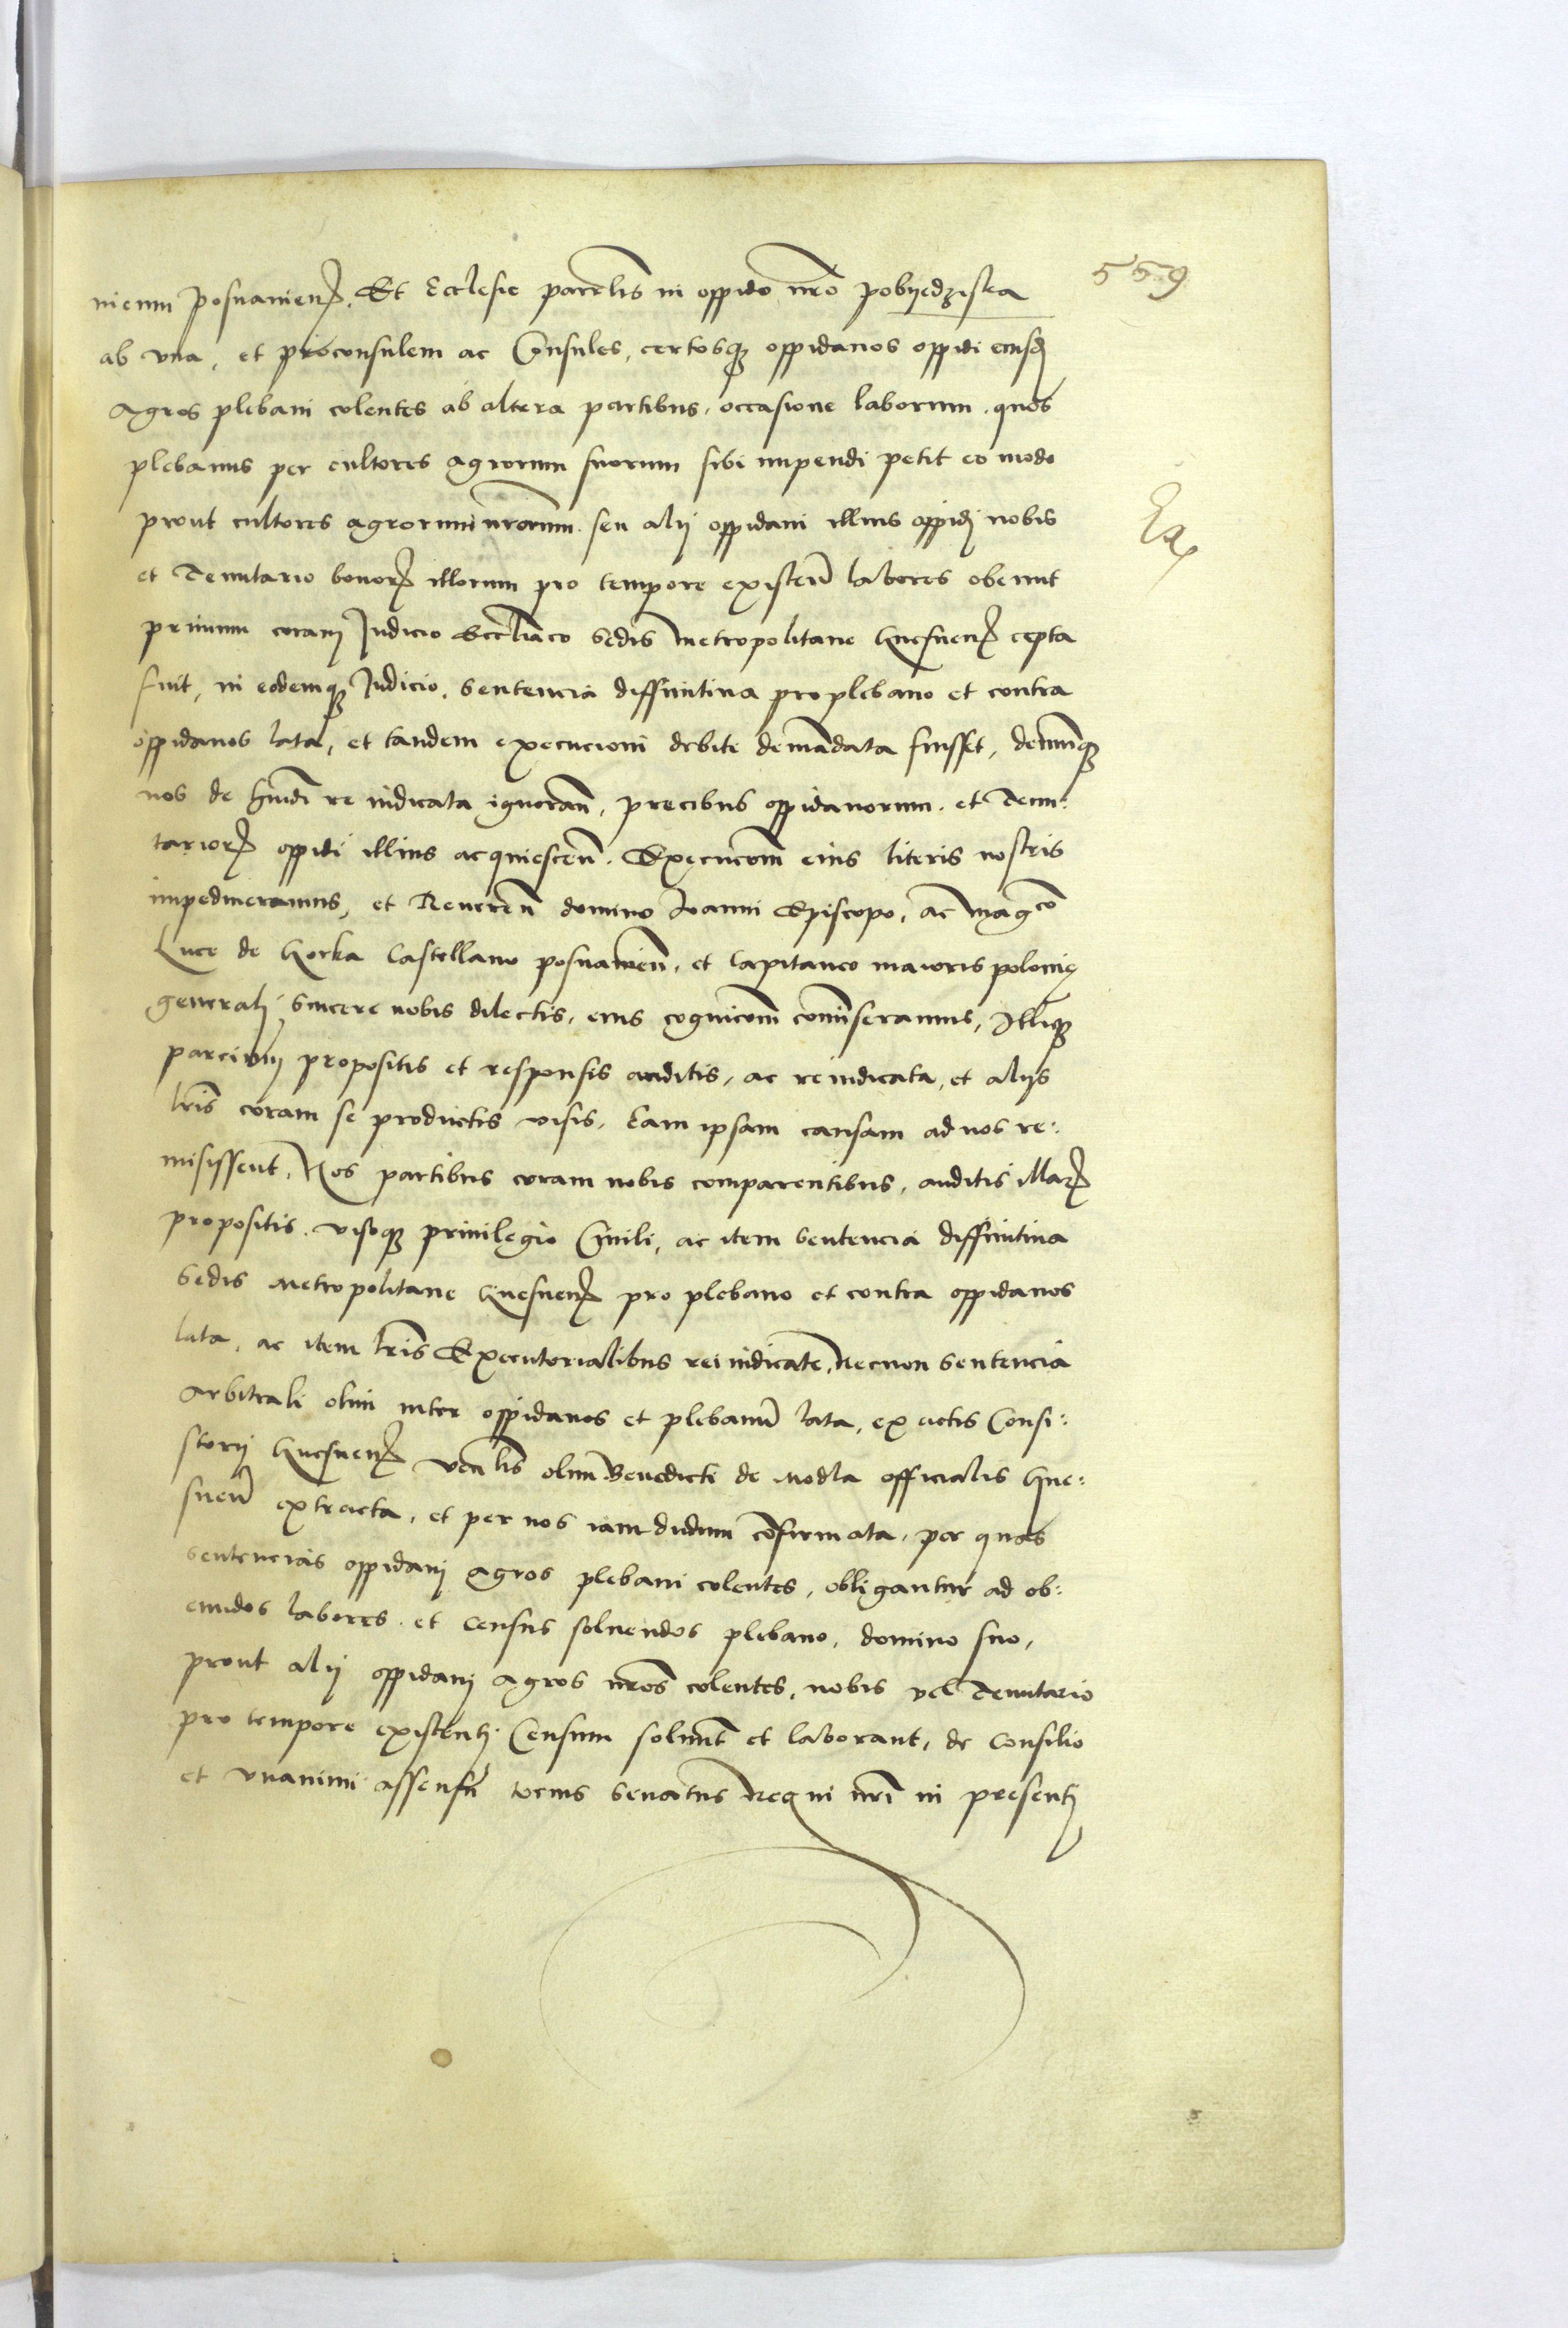 559
nicum Posnaniens. Et Ecclesie parrolis in oppido nro Pobyedziska
ab vna, et proconsulem ac Consules, certosq oppidanos oppidi eiusd
Agros plebani colentes ab altera partibus, occasione laborum, quos
plebanus per cultores agrorum suorum sibi impendi petit eo modo
prout cultores agrorum nrorum seu alij oppidani illius oppidj nobis
et Tenutario bonor illorum pro tempore existen labores obeunt
primum coram Judicio Eccliaco Sedis Metropolitane Gnesnen cepta
fuit, in eodemq Judicio, Sentencia diffinitiua pro plebano et contra
oppidanos lata, et tandem execucioni debite demandata fuisset, demumq
nos de huiusmdi re iudicata ignoran, precibus oppidanorum, et Tenu:
tarior oppidi illius acquiescen, Execucom eius literis nostris
impedineramus, et Reueren domino Joanni Episcopo, ac Magco
Luce de Gorka Castellano posnanien, et Capitaneo maioris polonię
generalj sincere nobis dilectis, eius cognicom comiseramus, Illiq
parcium propositis et responsis auditis, ac re iudicata, et alijs
lris coram se productis visis, Eam ipsam causam ad nos re:
misissent, Nos partibus coram nobis comparentibus, auditis illar
propositis, visoq priuilegio Ciuili, ac item Sentencia diffinitiua
Sedis Metropolitane Gnesnen pro plebano et contra oppidanos
lata, ac item lris Executorialibus rei iudicate, Necnon Sentencia
Arbitrali olim inter oppidanos et plebanu lata, ex actis Consi:
storij Gnesnen Venlis olim Benedicti de Modla officialis Gne:
snen extracta, et per nos iamdudum cofirmata, per quas
sentencias oppidanj agros plebani colentes, obligantur ad ob:
eundos labores, et Census soluendos plebano, domino suo,
prout alij oppidanj agros nros colentes, nobis vel Tenutario
pro tempore existentj Censum soluunt et laborant, de Consilio
et vnanimi assensu tocius Senatus Regni nri in presentj